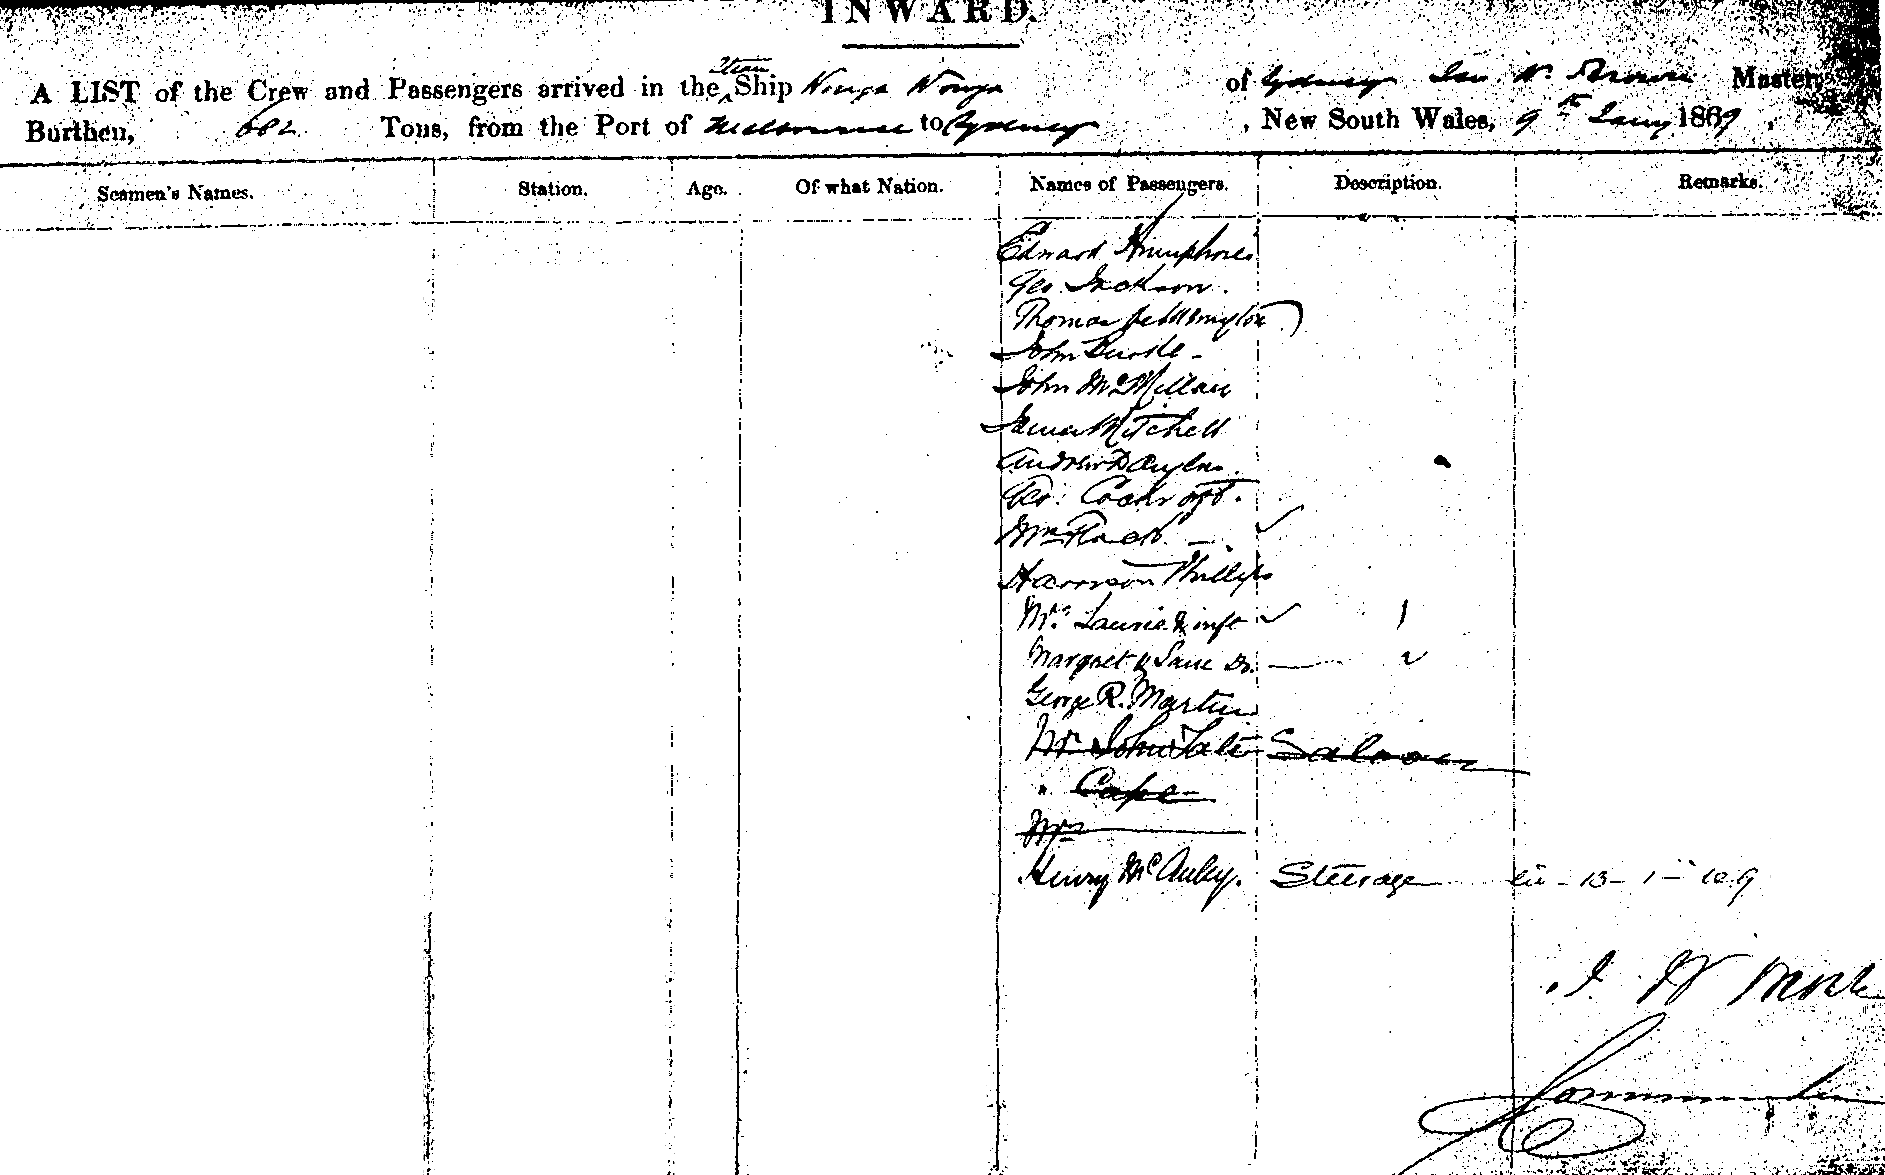 INWARD.
A LIST of the Crew and Passengers arrived in the Steam Ship Wonga Wonga of Sydney Master,
Burthen, 682 Tons, from the Port of Melbourne to Sydney, New South Wales, 9th Jany 1869,
Seamen's Names. Station. Age. Of what Nation. Names of Passengers. Description. Remarks.
Edward Humphries
Geo Jackson.
Thomas
John
John McMillan
James Mitchell
Andrew Douglas.
Geo: Cockroft.
Wm
Harrison Phillips
Mrs Laurie & inft 1
Margret & Jane Do. 2
George R. Martin
Mr John Tate Saloon
" Cape
Mrs
Henry McAuley. Steerage 13-1-
J W
Commander